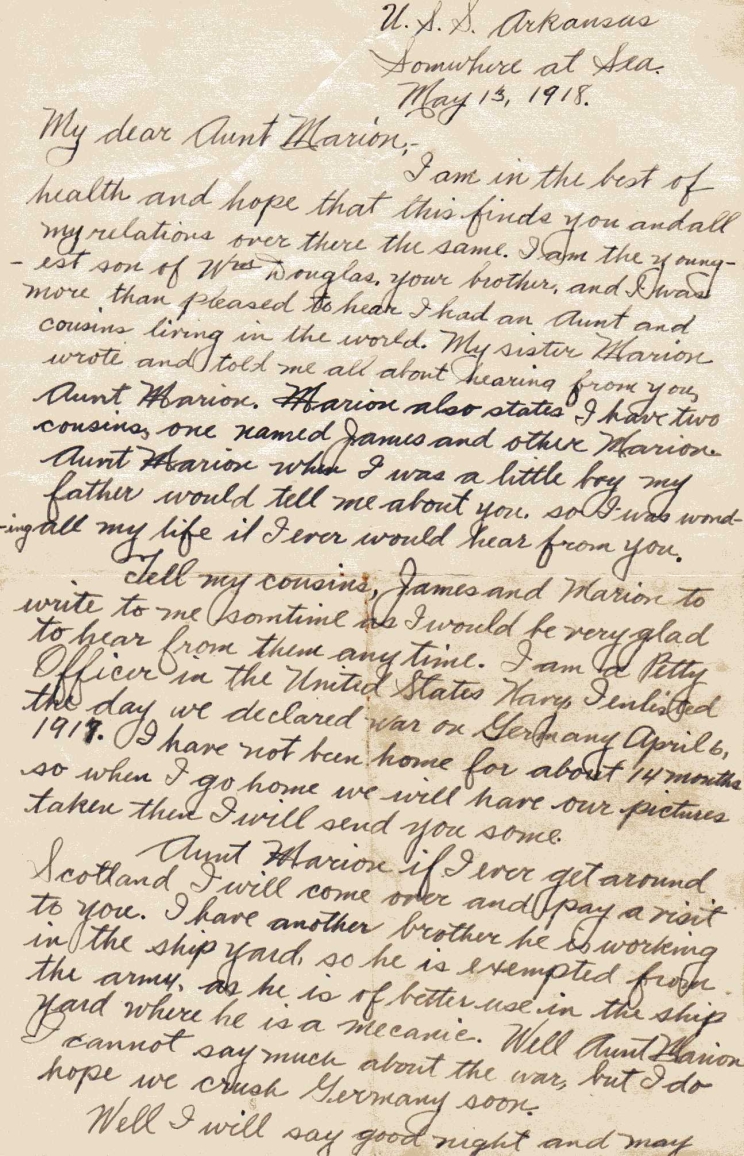 U. S. S. Arkansas
Somwhere at Sea.
May 13, 1918.
My dear Aunt Marion,-
I am in the best of
health and hope that this finds you and all
my relations over there the same. I am the young-
- est son of Wm Douglas, your brother, and I was
more than pleased to hear I had an Aunt and
cousins living in the world. My sister Marion
wrote and told me all about hearing from you,
Aunt Marion. Marion also states I have two
cousins, one named James and other Marion.
Aunt Marion when I was a little boy my
father would tell me about you. so I was wond-
-ing all my life if I ever would hear from you.
Tell my cousins, James and Marion to
write to me somtime as I would be very glad
to hear from them any time. I am a Petty
Officer in the United States Navy, I enlisted
the day we declared war on Germany April 6,
1917. I have not been home for about 14 months
so when I go home we will have our pictures
taken then I will send you some.
Aunt Marion if I ever get around
Scotland I will come over and pay a visit
to you. I have another brother he is working
in the ship yard, so he is exempted from
the army, as he is of better use in the ship
yard where he is a mecanic. Well Aunt Marion
I cannot say much about the war, but I do
hope we crush Germany soon.
Well I will say good night and may